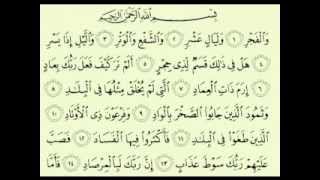 بِسْمِ اللَّهِ الرَّحْمَٰنِ الرَّحِيمِ
وَالْفَجْرِ ١ وَلَيَالٍ عَشْرٍ ٢ وَالشَّفْعِ وَالْوَتْرِ ٣ وَاللَّيْلِ إِذَا يَسْرِ
٤ هَلْ فِي ذَٰلِكَ قَسَمٌ لِّذِي حِجْرٍ ٥ أَلَمْ تَرَ كَيْفَ فَعَلَ رَبُّكَ بِعَادٍ
٦ إِرَمَ ذَاتِ الْعِمَادِ ٧ الَّتِي لَمْ يُخْلَقْ مِثْلُهَا فِي الْبِلَادِ ٨
وَثَمُودَ الَّذِينَ جَابُوا الصَّخْرَ بِالْوَادِ ٩ وَفِرْعَوْنَ ذِي الْأَوْتَادِ ١٠
الَّذِينَ طَغَوْا فِي الْبِلَادِ ١١ فَأَكْثَرُوا فِيهَا الْفَسَادَ ١٢ فَصَبَّ
عَلَيْهِمْ رَبُّكَ سَوْطَ عَذَابٍ ١٣ إِنَّ رَبَّكَ لَبِالْمِرْصَادِ ١٤ فَأَمَّا